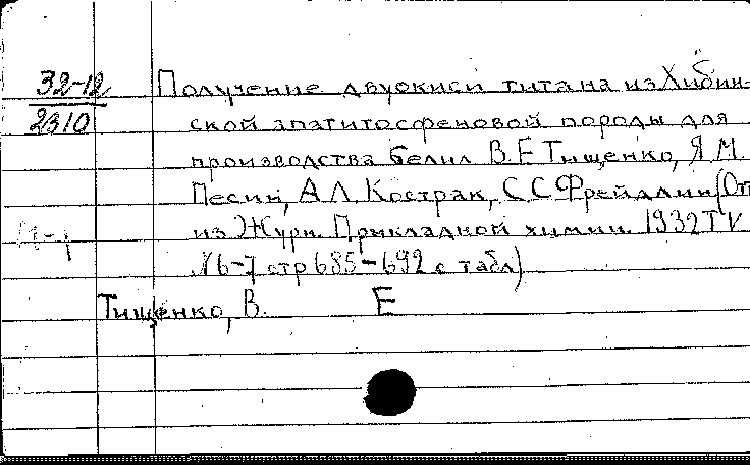 32-12 Получение двуокиси титана из Хибин-
2310 ской апатитосфеновой породы для
производства белил В.Е Тищенко, Я М.
Песин, А Л. Кострак, С С Фрейдлин (От
из Журн. Прикладной химии 1932 T V
№ 6-7 стр 685-692 с табл)
Тищенко, В. Е